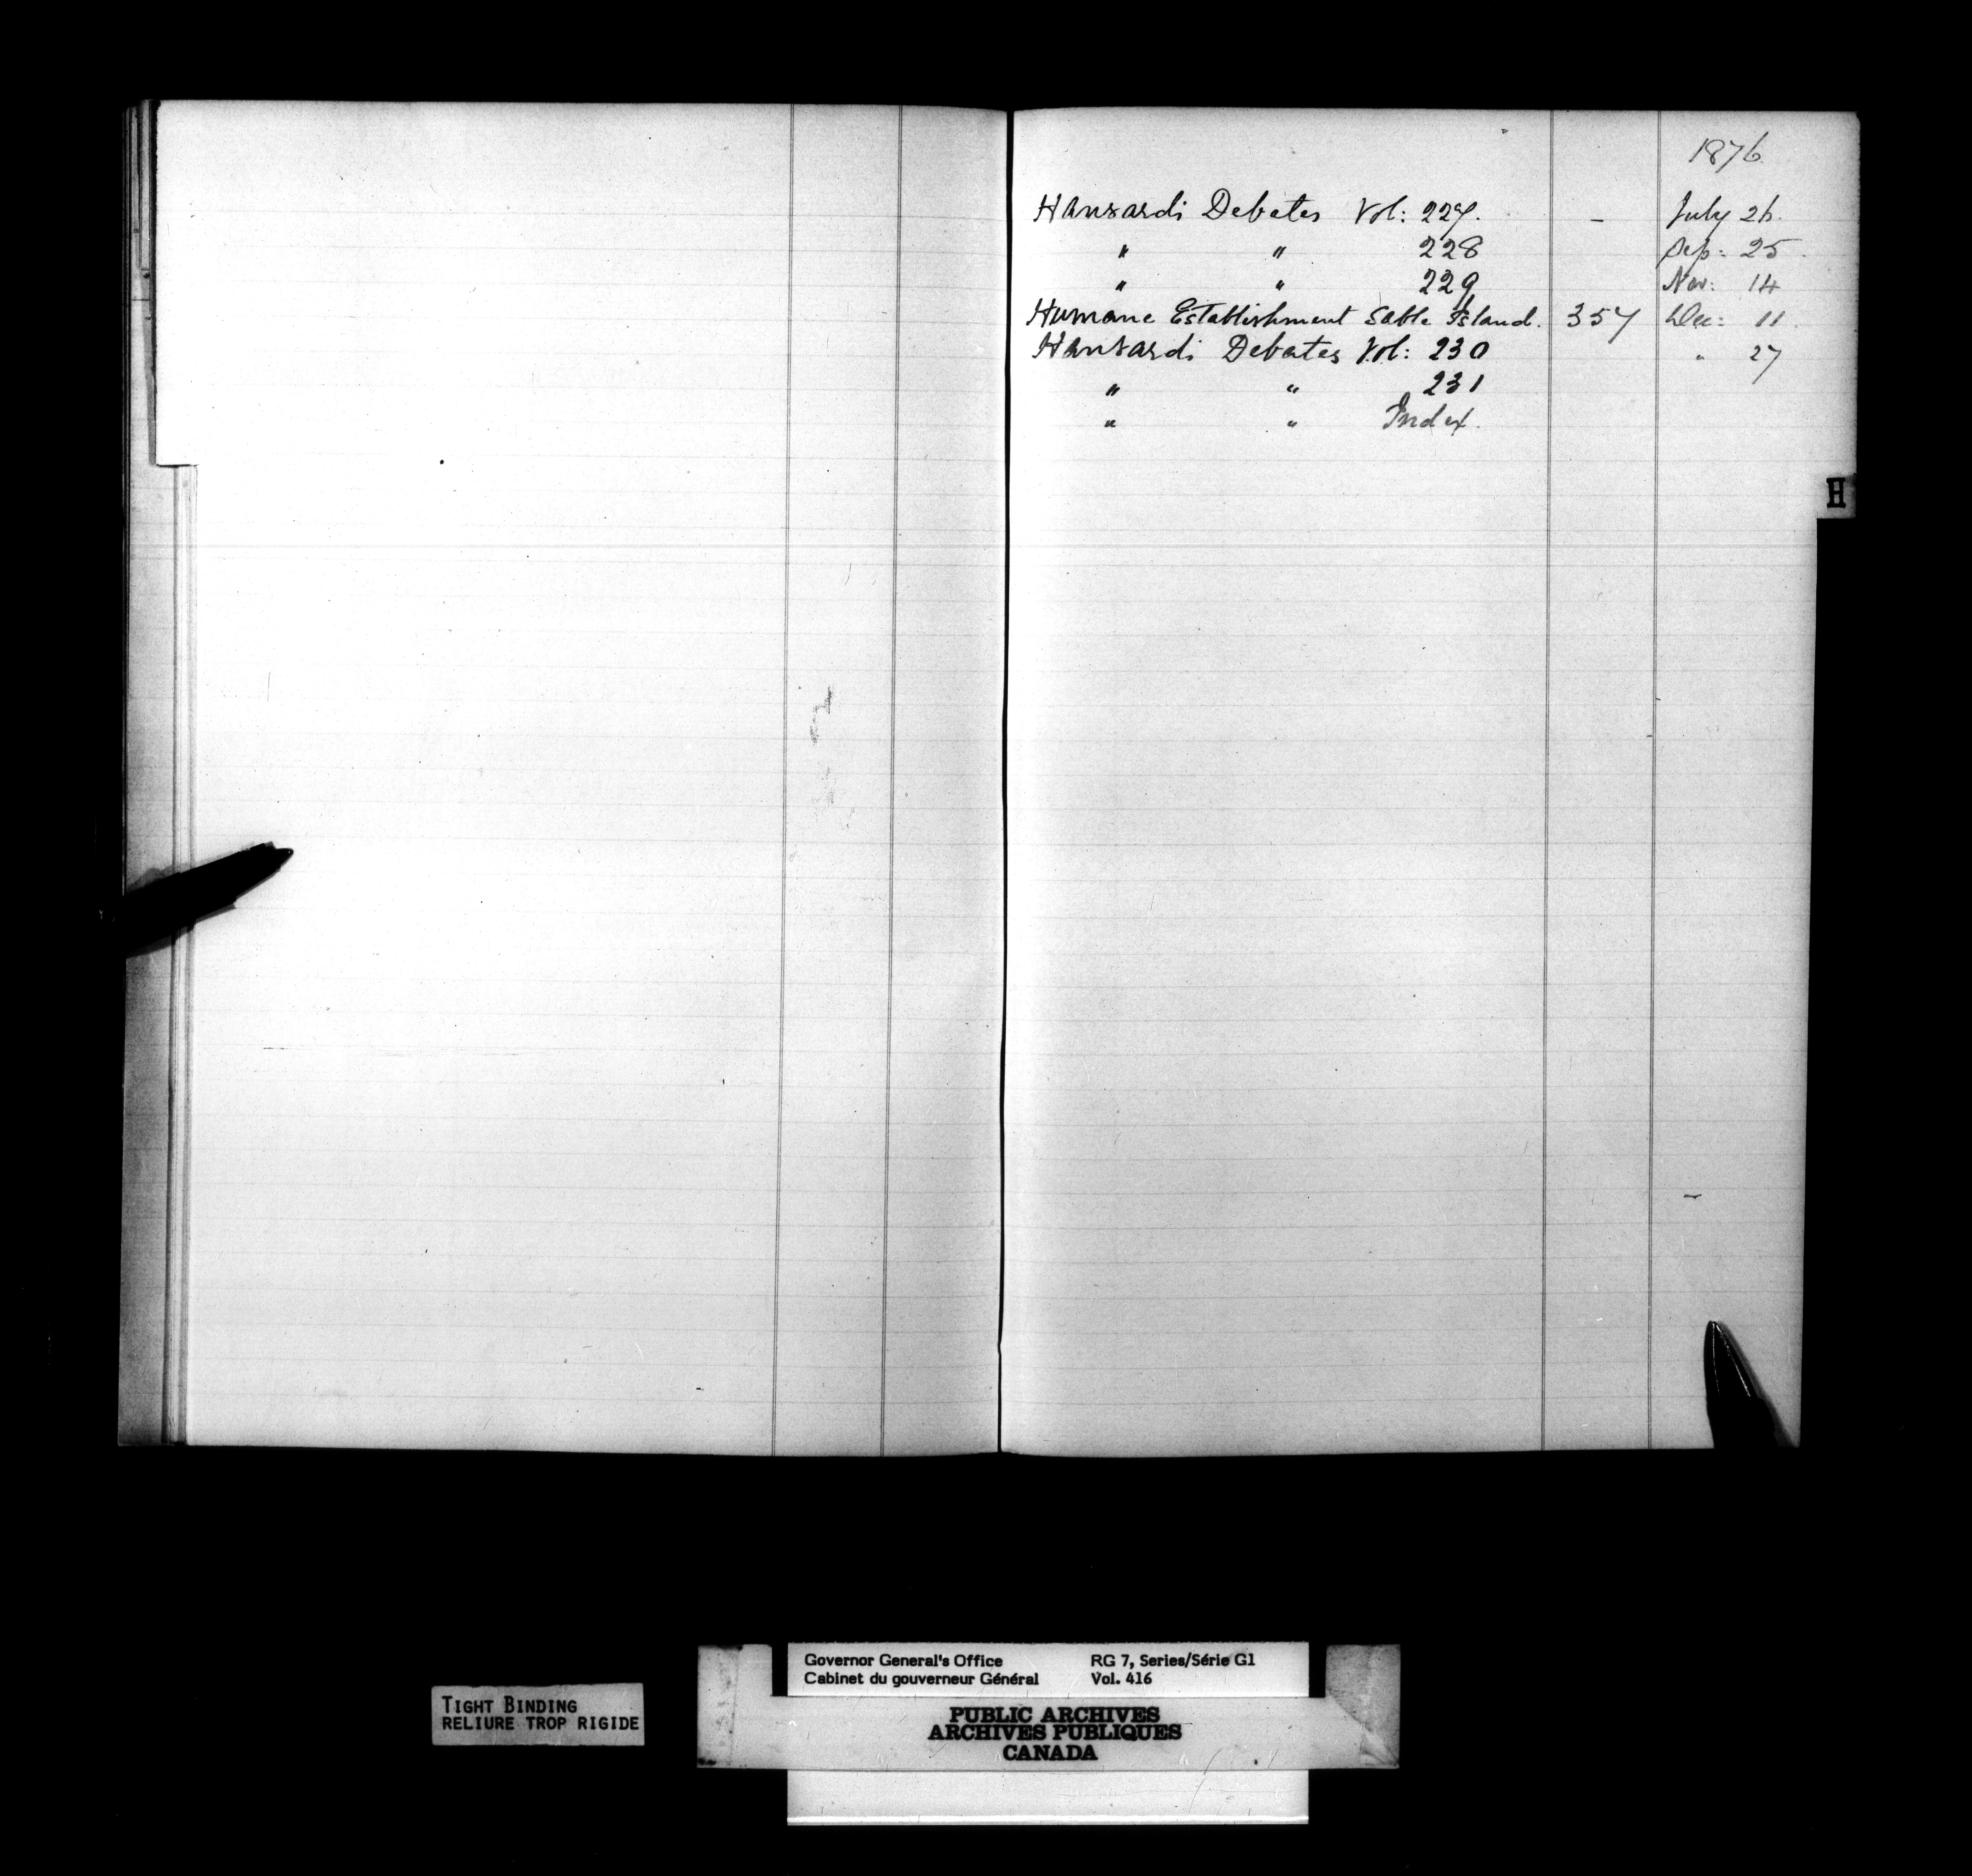 1876
Hansards Debates Vol: 227. - July 26.
" " 228 Sep: 25.
" " 229 Nov: 14
Humane Establishment Sable Island. 357 Dec: 11.
Hansards Debates Vol: 230 " 27
" " 231
" " Index.
H
Governor General's Office RG 7, Series/Série G1
Cabinet du gouverneur Général Vol. 416
TIGHT BINDING
RELIURE TROP RIGIDE
PUBLIC ARCHIVES
ARCHIVES PUBLIQUES
CANADA